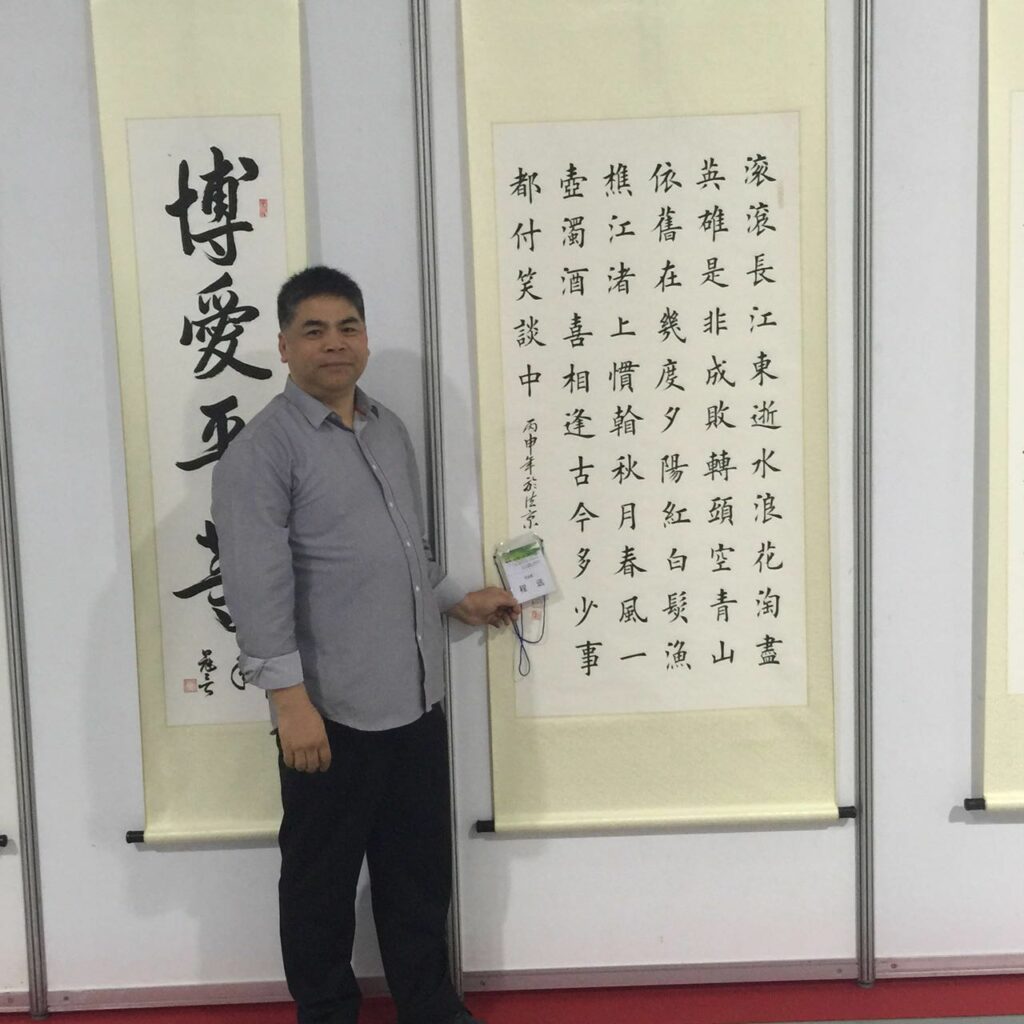 滾滾長江東逝水浪花淘盡
英雄是非成敗轉頭空青山
依舊在幾度夕陽紅白髮漁
樵江渚上慣翰秋月春風一
壺濁酒喜相逢古今多少事
都付笑談中
丙申年於京
程
博愛